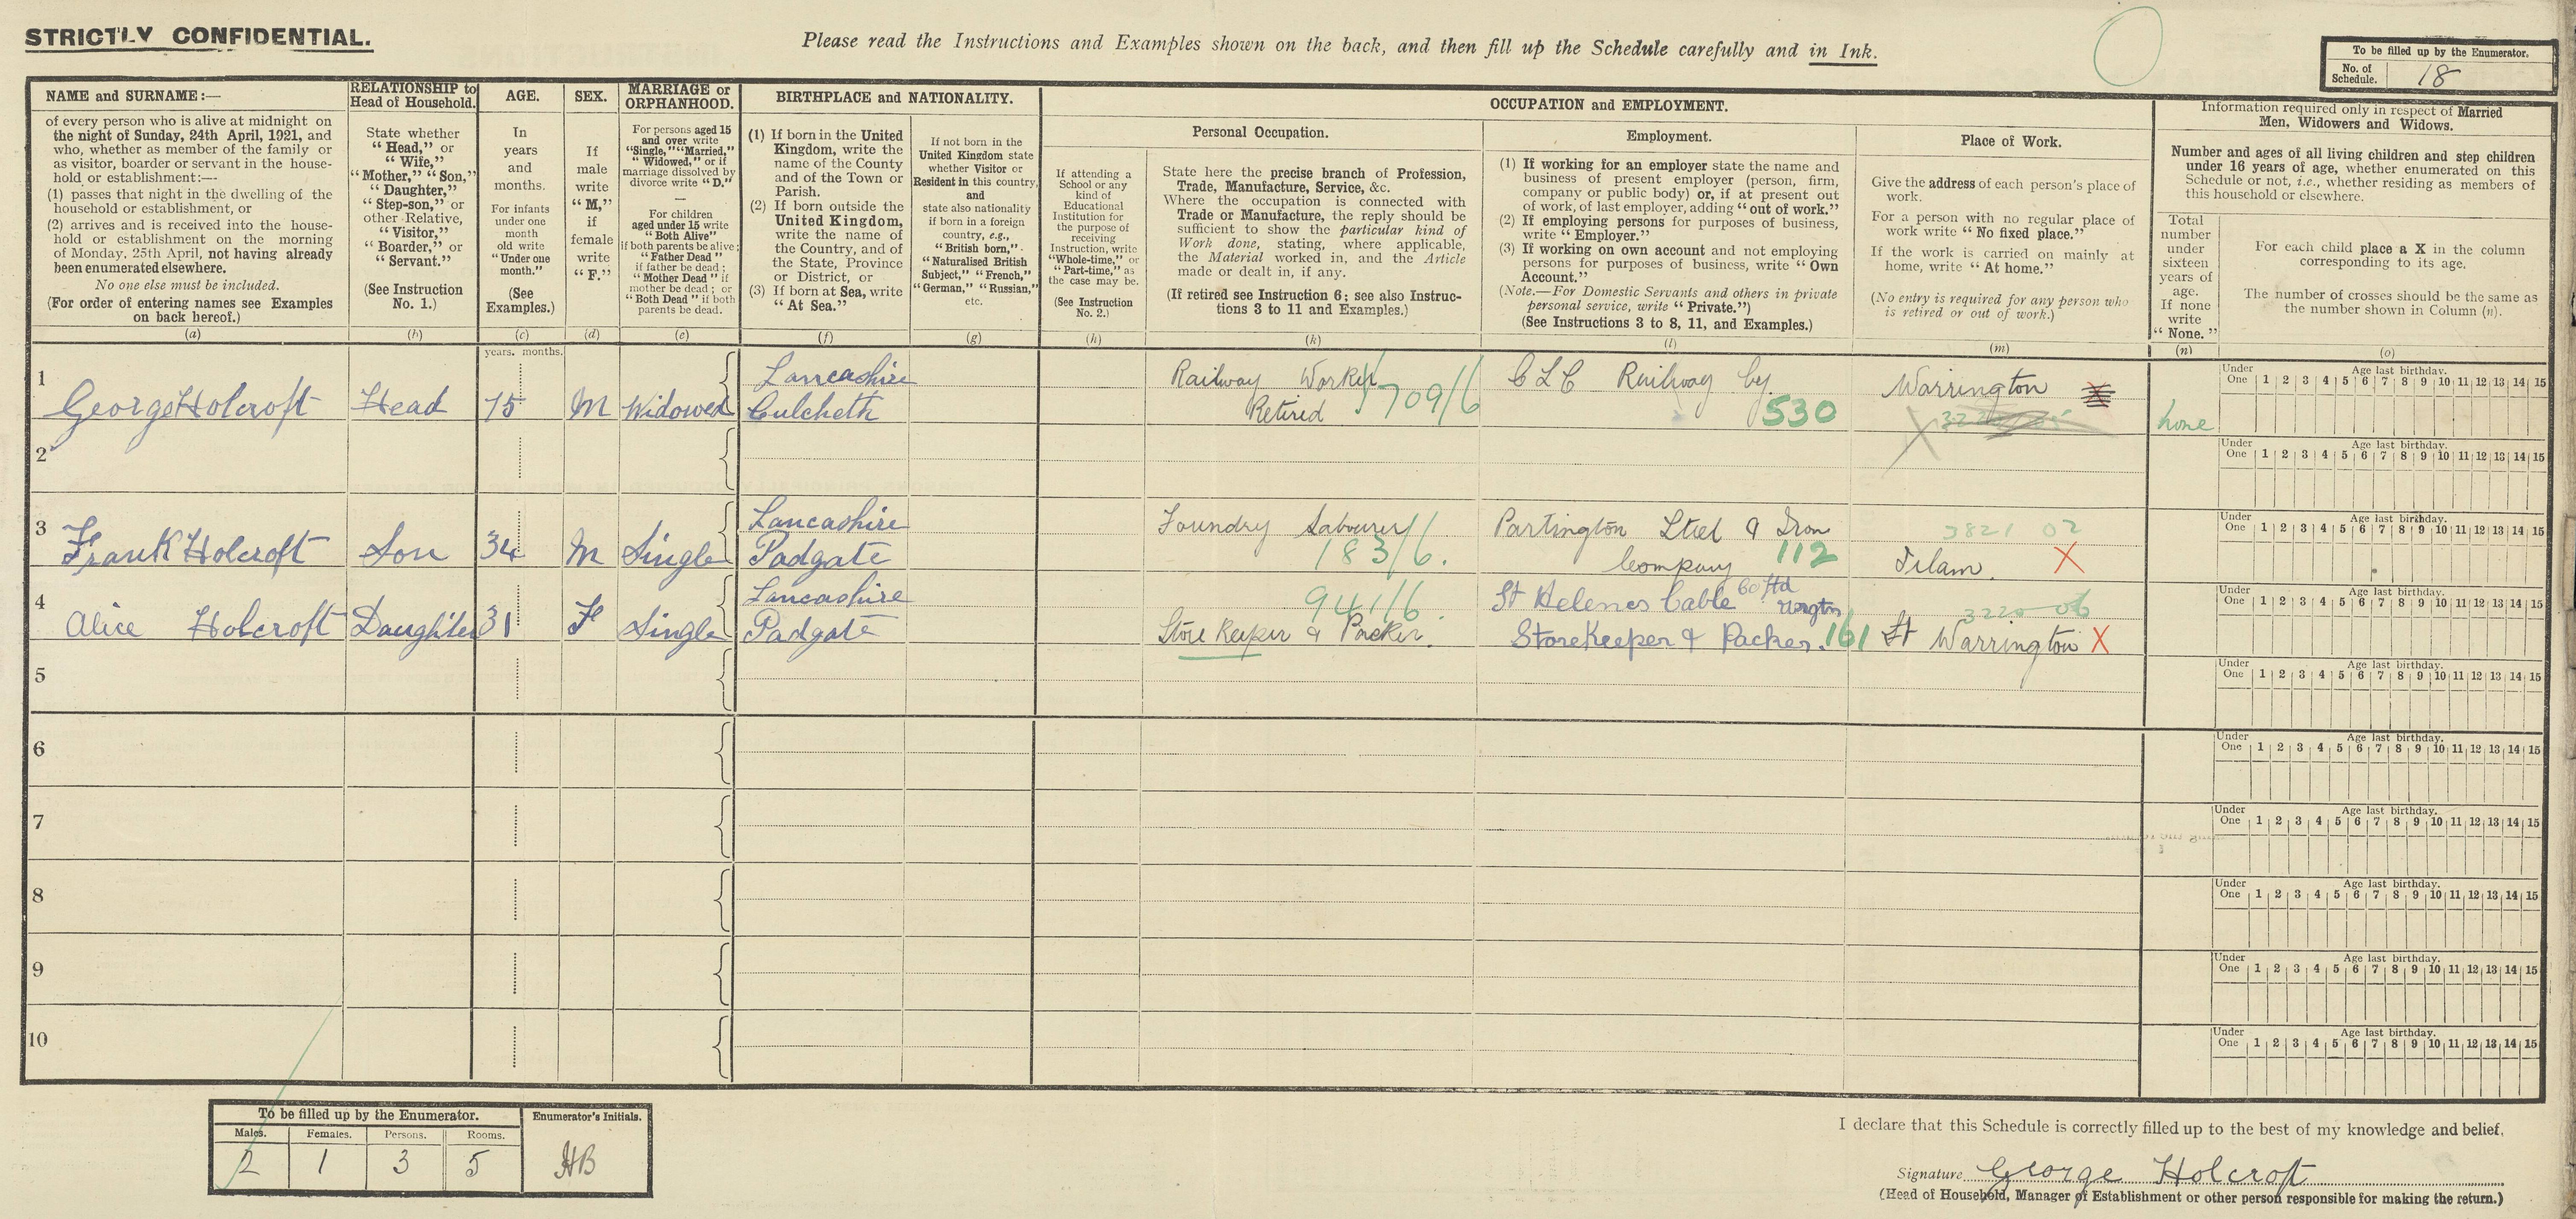 STRICTLY CONFIDENTIAL.
Please read the Instructions and Examples shown on the back, and then fill up the Schedule carefully and in Ink.
To be filled up by the Enumerator.
No. of Schedule. 18
NAME and SURNAME:—
of every person who is alive at midnight on
the night of Sunday, 24th April, 1921, and
who, whether as member of the family or
as visitor, boarder or servant in the house-
hold or establishment:—
(1) passes that night in the dwelling of the
household or establishment, or
(2) arrives and is received into the house-
hold or establishment on the morning
of Monday, 25th April, not having already
been enumerated elsewhere.
No one else must be included.
(For order of entering names see Examples
on back hereof.)
(a)
RELATIONSHIP to
Head of Household.
State whether
"Head," or
"Wife,"
"Mother," "Son,"
"Daughter,"
"Step-son," or
other Relative,
"Visitor,"
"Boarder," or
"Servant."
(See Instruction
No. 1.)
(b)
AGE.
In
years
and
months.
For infants
under one
month
old write
"Under one
month."
(See
Examples.)
(c)
SEX.
If
male
write
"M,"
if
female
write
"F."
(d)
MARRIAGE or
ORPHANHOOD.
For persons aged 15
and over write
"Single," "Married,"
"Widowed," or if
marriage dissolved by
divorce write "D."
For children
aged under 15 write
"Both Alive"
if both parents be alive;
"Father Dead"
if father be dead;
"Mother Dead" if
mother be dead; or
"Both Dead" if both
parents be dead.
(e)
BIRTHPLACE and NATIONALITY.
(1) If born in the United
Kingdom, write the
name of the County
and of the Town or
Parish.
(2) If born outside the
United Kingdom,
write the name of
the Country, and of
the State, Province
or District, or
(3) If born at Sea, write
"At Sea."
(f)
If not born in the
United Kingdom state
whether Visitor or
Resident in this country,
and
state also nationality
if born in a foreign
country, e.g.,
"British born,"
"Naturalised British
Subject," "French,"
"German," "Russian,"
etc.
(g)
OCCUPATION and EMPLOYMENT.
If attending a
School or any
kind of
Educational
Institution for
the purpose of
receiving
Instruction, write
"Whole-time," or
"Part-time," as
the case may be.
(See Instruction
No. 2.)
(h)
Personal Occupation.
State here the precise branch of Profession,
Trade, Manufacture, Service, &c.
Where the occupation is connected with
Trade or Manufacture, the reply should be
sufficient to show the particular kind of
Work done, stating, where applicable,
the Material worked in, and the Article
made or dealt in, if any.
(If retired see Instruction 6; see also Instruc-
tions 3 to 11 and Examples.)
(k)
Employment.
(1) If working for an employer state the name and
business of present employer (person, firm,
company or public body) or, if at present out
of work, of last employer, adding "out of work."
(2) If employing persons for purposes of business,
write "Employer."
(3) If working on own account and not employing
persons for purposes of business, write "Own
Account."
(Note.—For Domestic Servants and others in private
personal service, write "Private.")
(See Instructions 3 to 8, 11, and Examples.)
(l)
Place of Work.
Give the address of each person's place of
work.
For a person with no regular place of
work write "No fixed place."
If the work is carried on mainly at
home, write "At home."
(No entry is required for any person who
is retired or out of work.)
(m)
Information required only in respect of Married
Men, Widowers and Widows.
Number and ages of all living children and step children
under 16 years of age, whether enumerated on this
Schedule or not, i.e., whether residing as members of
this household or elsewhere.
Total
number
under
sixteen
years of
age.
If none
write
"None."
(n)
For each child place a X in the column
corresponding to its age.
The number of crosses should be the same as
the number shown in Column (n).
(o)
years. months.
1
Lancashire
Railway Worker
C L C Railway Cy
Warrington X
George Holcroft Head 75 M Widowed Culcheth
Retired 709/6
530
none
Under One 1 2 3 4 5 6 7 8 9 10 11 12 13 14 15
Age last birthday.
2
Under One 1 2 3 4 5 6 7 8 9 10 11 12 13 14 15
Age last birthday.
3
Lancashire
Foundry Labourer
Partington Steel & Iron
3821 02
Frank Holcroft Son 34 M Single Padgate
183/6.
Company 112
Irlam. X
Under One 1 2 3 4 5 6 7 8 9 10 11 12 13 14 15
Age last birthday.
4
Lancashire
941/6.
St Helenes Cable Co Ltd
3220 06
Alice Holcroft Daughter 31 F Single Padgate
Store Keeper & Packer.
StoreKeeper & Packer. 161
Warrington X
Under One 1 2 3 4 5 6 7 8 9 10 11 12 13 14 15
Age last birthday.
5
Under One 1 2 3 4 5 6 7 8 9 10 11 12 13 14 15
Age last birthday.
6
Under One 1 2 3 4 5 6 7 8 9 10 11 12 13 14 15
Age last birthday.
7
Under One 1 2 3 4 5 6 7 8 9 10 11 12 13 14 15
Age last birthday.
8
Under One 1 2 3 4 5 6 7 8 9 10 11 12 13 14 15
Age last birthday.
9
Under One 1 2 3 4 5 6 7 8 9 10 11 12 13 14 15
Age last birthday.
10
Under One 1 2 3 4 5 6 7 8 9 10 11 12 13 14 15
Age last birthday.
To be filled up by the Enumerator.
Enumerator's Initials.
Males. Females. Persons. Rooms.
2 1 3 5 HB
I declare that this Schedule is correctly filled up to the best of my knowledge and belief.
Signature George Holcroft
(Head of Household, Manager of Establishment or other person responsible for making the return.)